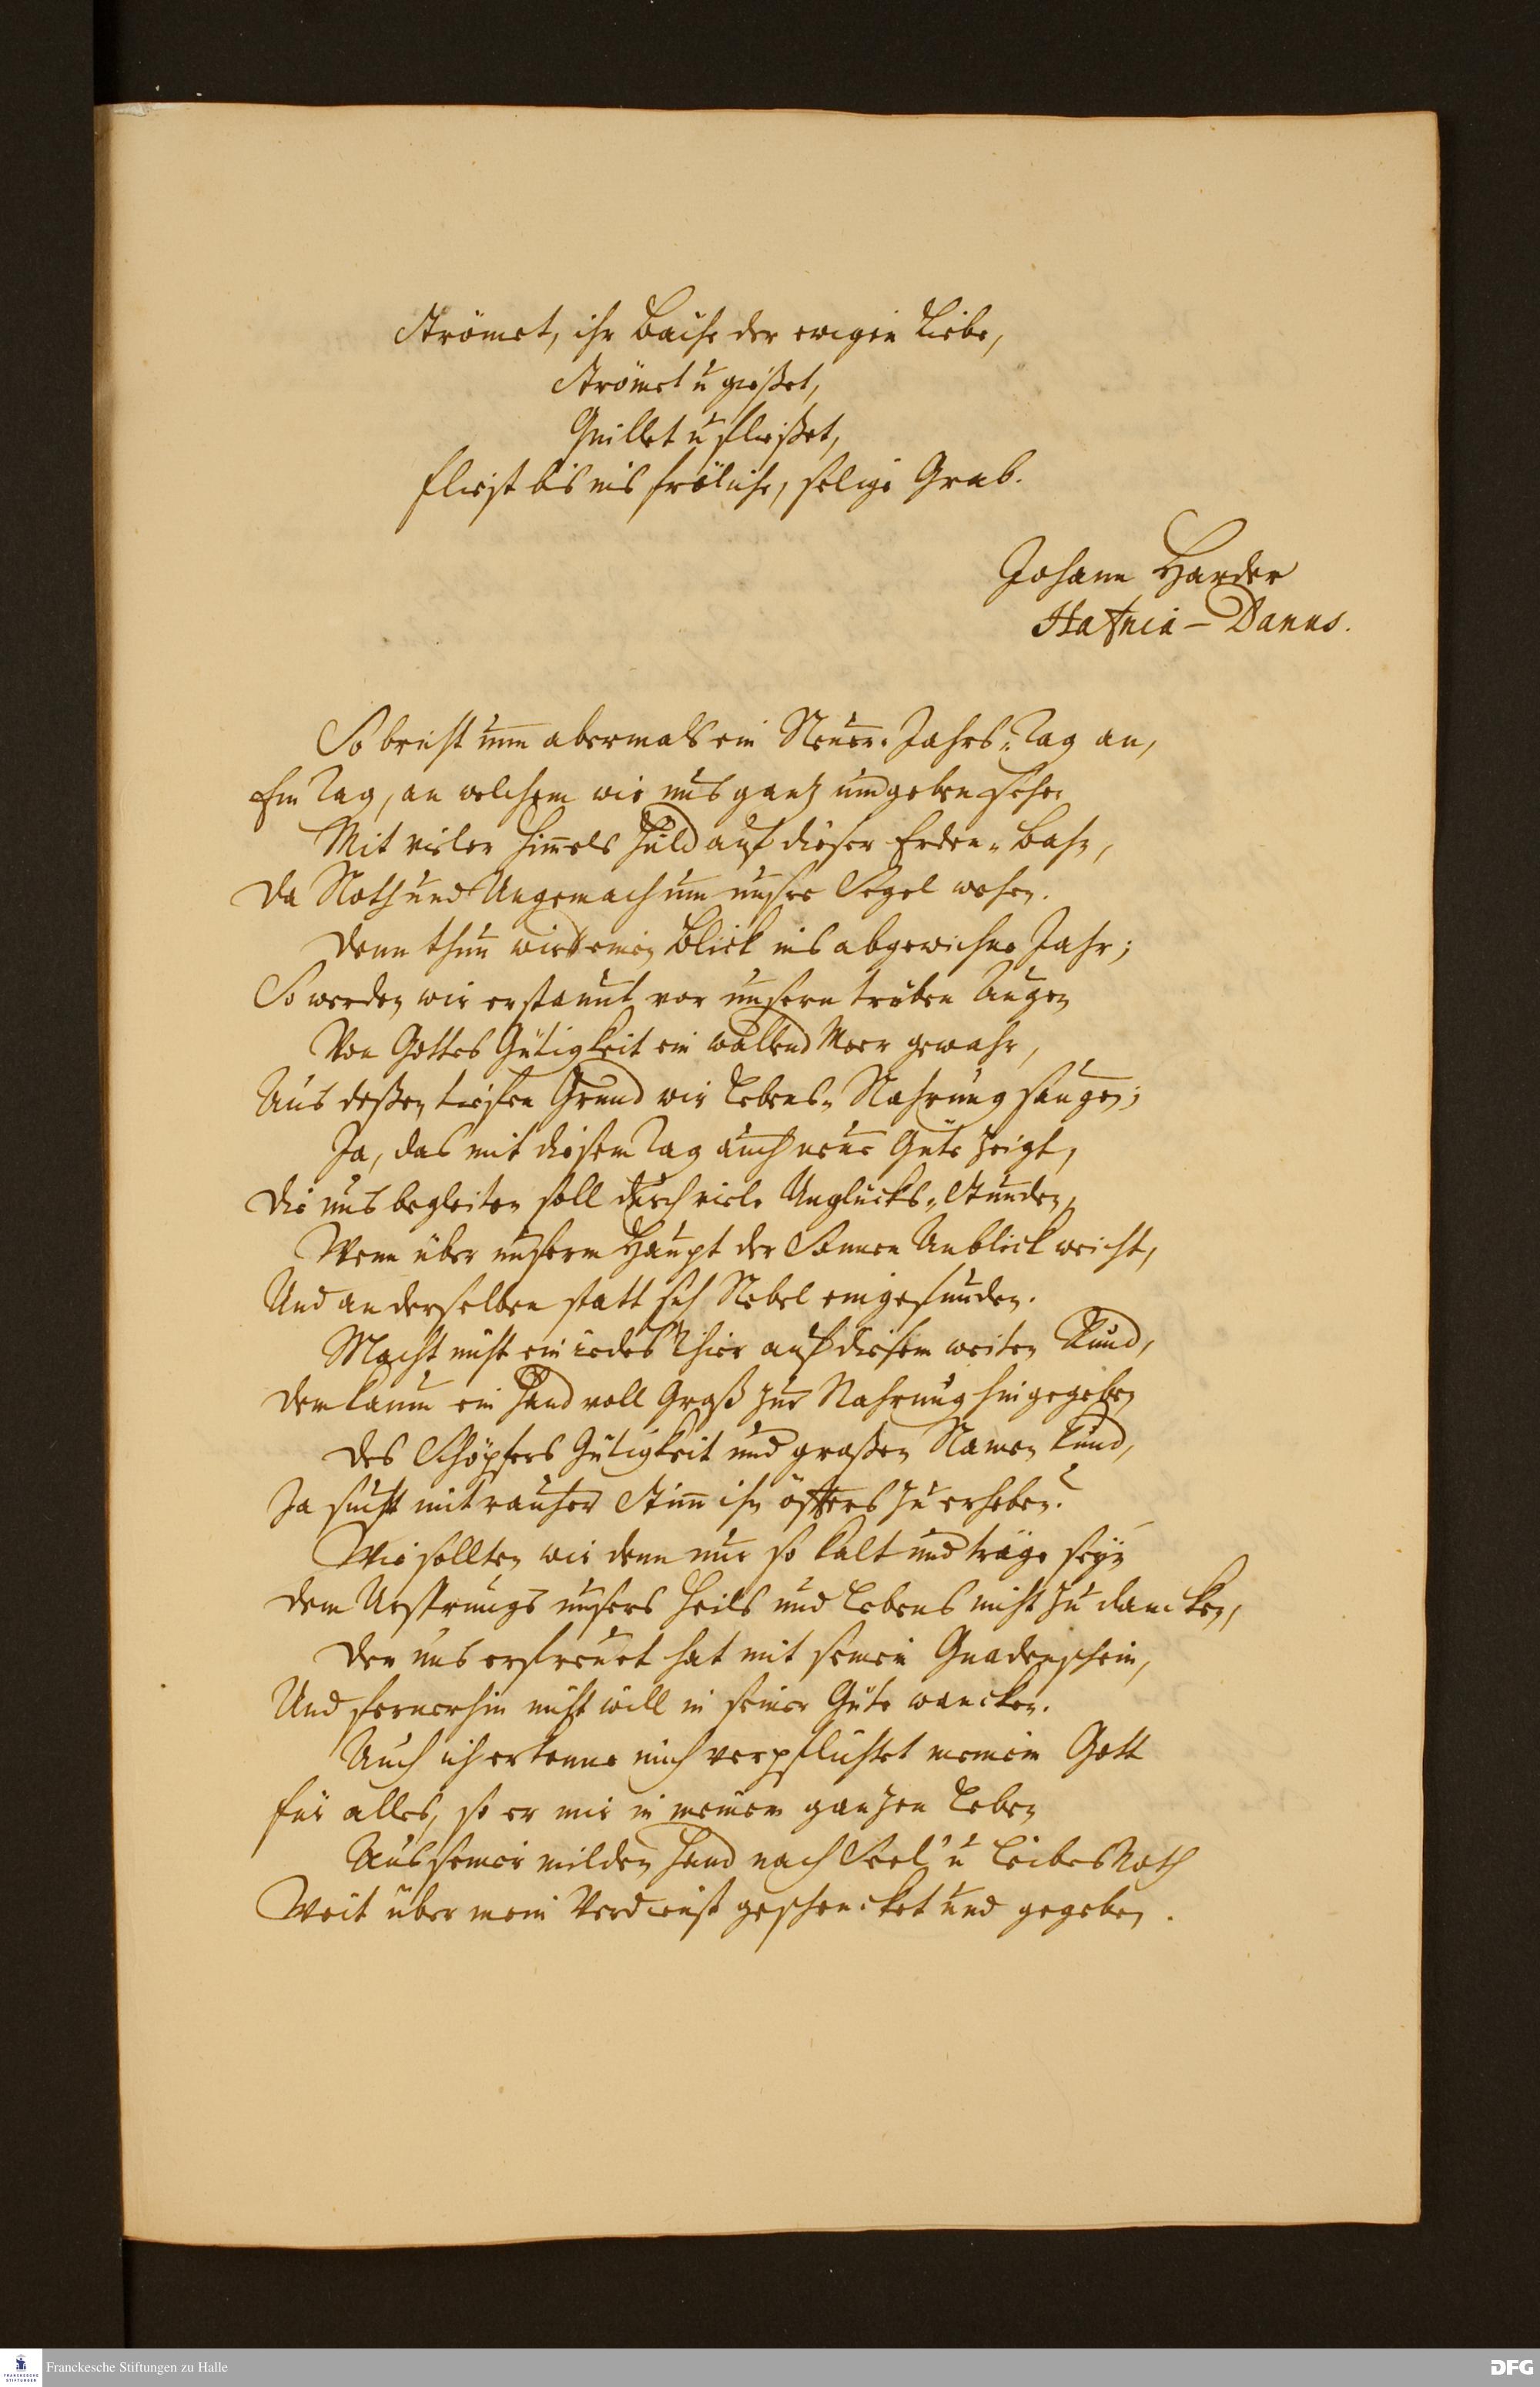 Strömet, ihr Bäche der ewigen Liebe,
Strömet u gießet,
Quillet u fließet,
fliest bis ins fröliche, selige Grab.
Johann Harder
Hafnia-Danus.
So bricht nun abermals ein Neues Jahrs-Tag an,
Ein Tag, an welchem wir uns gantz umgeben sehen
Mit vieler Himels Huld auf dieser Erden-Bahn,
Da Noth und Ungemach um unsre Segel wehen.
Denn thun wir einen Blick ins abgewichne Jahr;
So werden wir erstaunt vor unsern trüben Augen
Von Gottes Gütigkeit ein wallend Meer gewahr,
Aus deßen tiefen Grund wir Lebens-Nahrung saugen;
Ja, das mit diesem Tag auch neue Güte zeigt,
Die uns begleiten soll durch viele Unglücks-Stunden,
Wenn über unserm Haupt der Sonnen Anblick weicht,
Und an derselben statt sich Nebel eingefunden.
Macht nicht ein iedes Thier auf diesem weiten Rund,
Dem kaum ein Hand voll Graß zur Nahrung hingegeben
Des Schöpfers Gütigkeit und großen Namen kund,
Ja sucht mit rauher Stim ihn öffters zu erheben?
Wie sollten wir denn nur so kalt und träge seÿn
Dem Ursprunge unsers Heils und Lebens nicht zu dancken,
Der uns erfreuet hat mit seinen Gnadenschein,
Und fernerhin nicht will in seiner Güte wancken.
Auch ich erkenne mich verpflichtet meinem Gott
für alles, so er mir in meinem ganzen Leben
Aus seiner milden Hand nach Seel u Leibes Noth
Weit über mein Verdienst geschencket und gegeben.
Franckesche Stiftungen zu Halle
FRANCKESCHE STIFTUNGEN
DFG